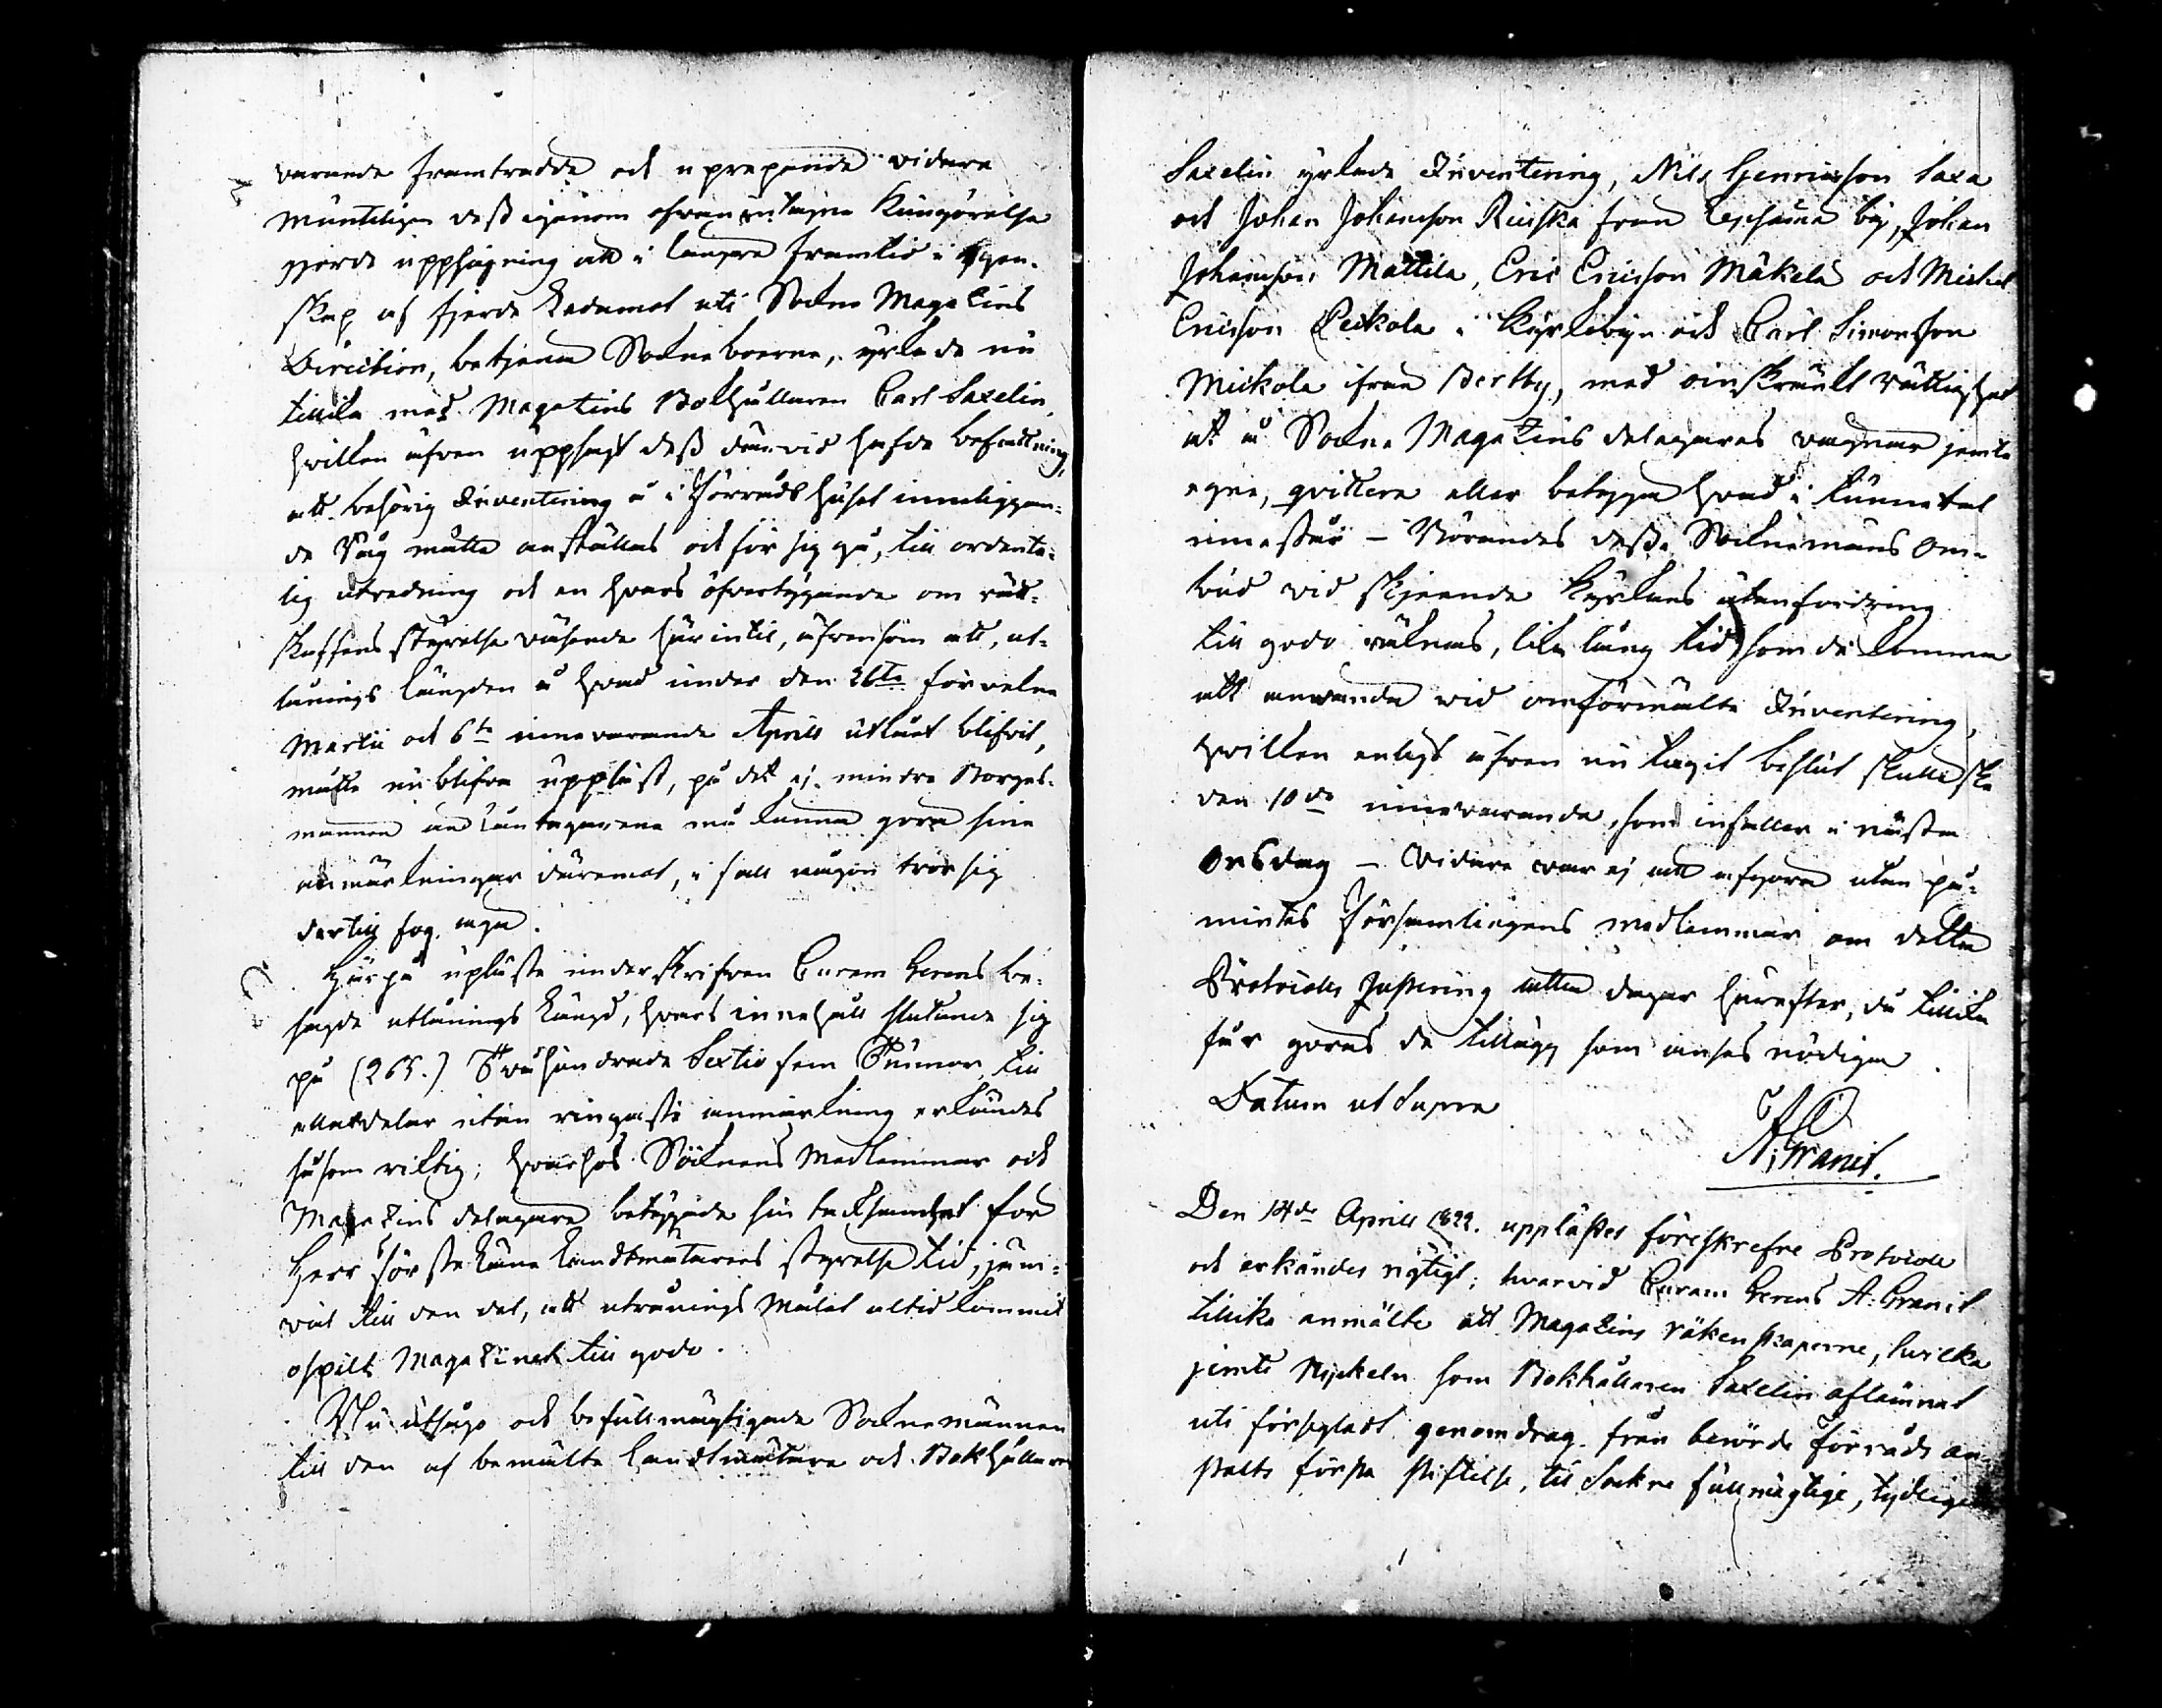 varande framtradde och uprepande vidare
muntligen dess igenom ofvan intagne Kungörelse
gjorde uppsägning att i längre framtid i egen-
skap af fjerde Ledamot uti Sockne Magazins
Direction, betjena Sockneboerne, yrkade nu
tillika med Magazins Bokhållaren Carl Saxelin
hvilken äfven uppsagt dess därvid hafde befattning,
att behörig Inventering å i Förrådshuset inneliggan-
de Råg måtte anställas och för sig gå, till ordente-
lig utredning och en hvars öfvertygande om rätt-
skaffens styrelse väsende här intil, äfvensom att, ut-
lånings längden å hvad under den 26te förvekne
Martii och 6te innevarande Aprill utlånt blifvit,
måtte nu blifva uppläst, på det ej mindre Borges-
männen än Låntagarena må kunna göra sina
anmärkningar däremot, i fall någon tror sig
dertill fog äga.
Härpå upläste underskrifven Curam Gerens be-
sagde utlånings Längd, hvars innehåll slutande sig
på (265.) Tvåhundrade Sextio fem Tunnor till
alla delar utan ringaste anmärkning erkändes
såsom riktig; hvarhos Socknens Medlemmar och
Magazins delagare betygade sin tacksamhet för
Herr Förste Landtmätarens styrelse tid, jäm-
väl till den del, att utmånings Målet altid kommit
ospilt Magazinet till godo.
Nu utsågo och befullmägtigade Socknemännen
till den af bemälte Landtmätare och Bokhållaren
Saxelin yrkade Inventering, Nils Henricsson Saxa
och Johan Johansson Ruiska från by, Johan
Johansson Mattila, Eric Ericsson Mäkelä och Michel
Ericsson Leikola i Kyrkobyn och Carl Simonsson
Mickola ifrån Bertby, med oinskränkt rättighet
att å Sockne Magazins delagares vägnar jemte
egne, qvittera eller betyga hvad i Lånetal
innestår – Börandes desse Socknemäns Om-
bud vid skeende Kyrkans utanfordring
till godo räknas, lika lång tid som de komma
att använda vid omförmälte Inventering,
hvilken enligt äfven nu tagit beslut skulle ske
den 10de innevarande, som infaller i nästa
Onsdag – Vidare war ej att afgöra utan på-
mintes Församlingens medlemmar om detta
Protocolls Justering åtta dagar härefter, då tillika
får göras de tillägg som anses nödiga
Datum ut Supra
A: Granit.
Den 14de Aprill 1822. uppläses föreskrefne Protocoll
och erkändes rigtigt; hvarvid Curam Gerens A: Granit
tillika anmälte att Magazins räkenskaperne, hvilka
jemte Nyckeln som Bokhållaren Saxelin aflämnat
uti försegladt genomdrag från berörde Förråds an-
stalts första stiftelse, til Sockne fullmägtige, tydligen